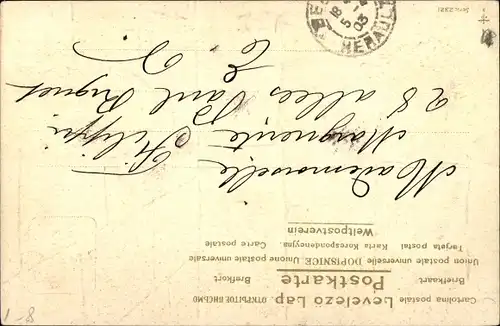 Cartolina postale Levelezö Lap. ОТКРЫТОЕ ПИСЬМО
Briefkaart Postkarte Brefkort
Union postale universelle DOPISNICE Unione postale universale
Tarjeta postal Karta Korespondencyjna Carte postale
Weltpostverein
Mademoiselle
Marguerite Filippi
28 allées Paul Riquet
E. V.
HERAULT
18
5
03
1-8